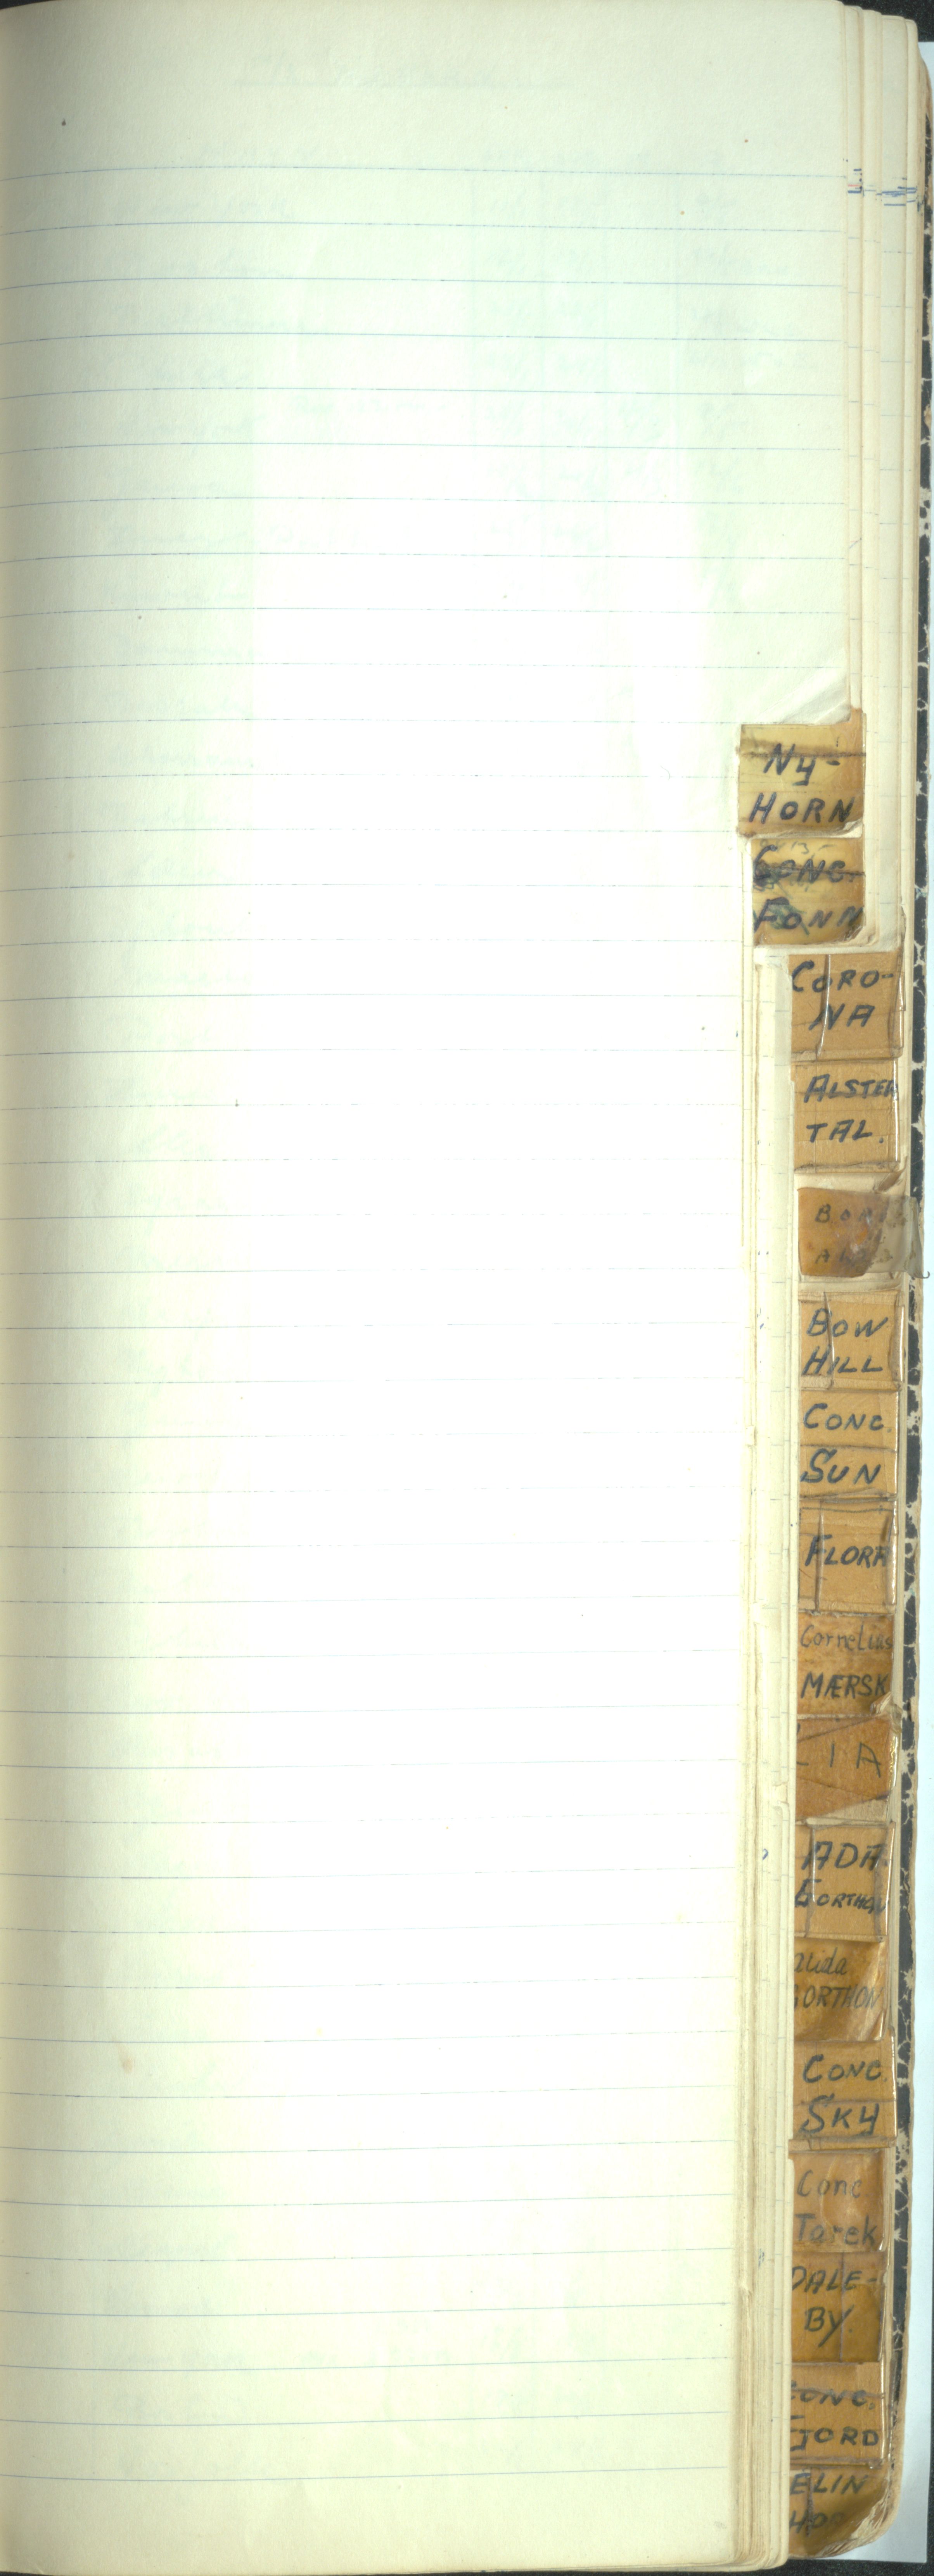 Ny-
HORN
CONC.
FONN
CORO-
NA
ALSTER
TAL.
BOW
HILL
CONC.
SUN
FLORA
Cornelius
MÆRSK
LIA
ADA
GORTHON
alida
GORTHON
CONC.
SKY
Conc
Tarek
DALE-
BY.
CONC.
FJORD
ELIN